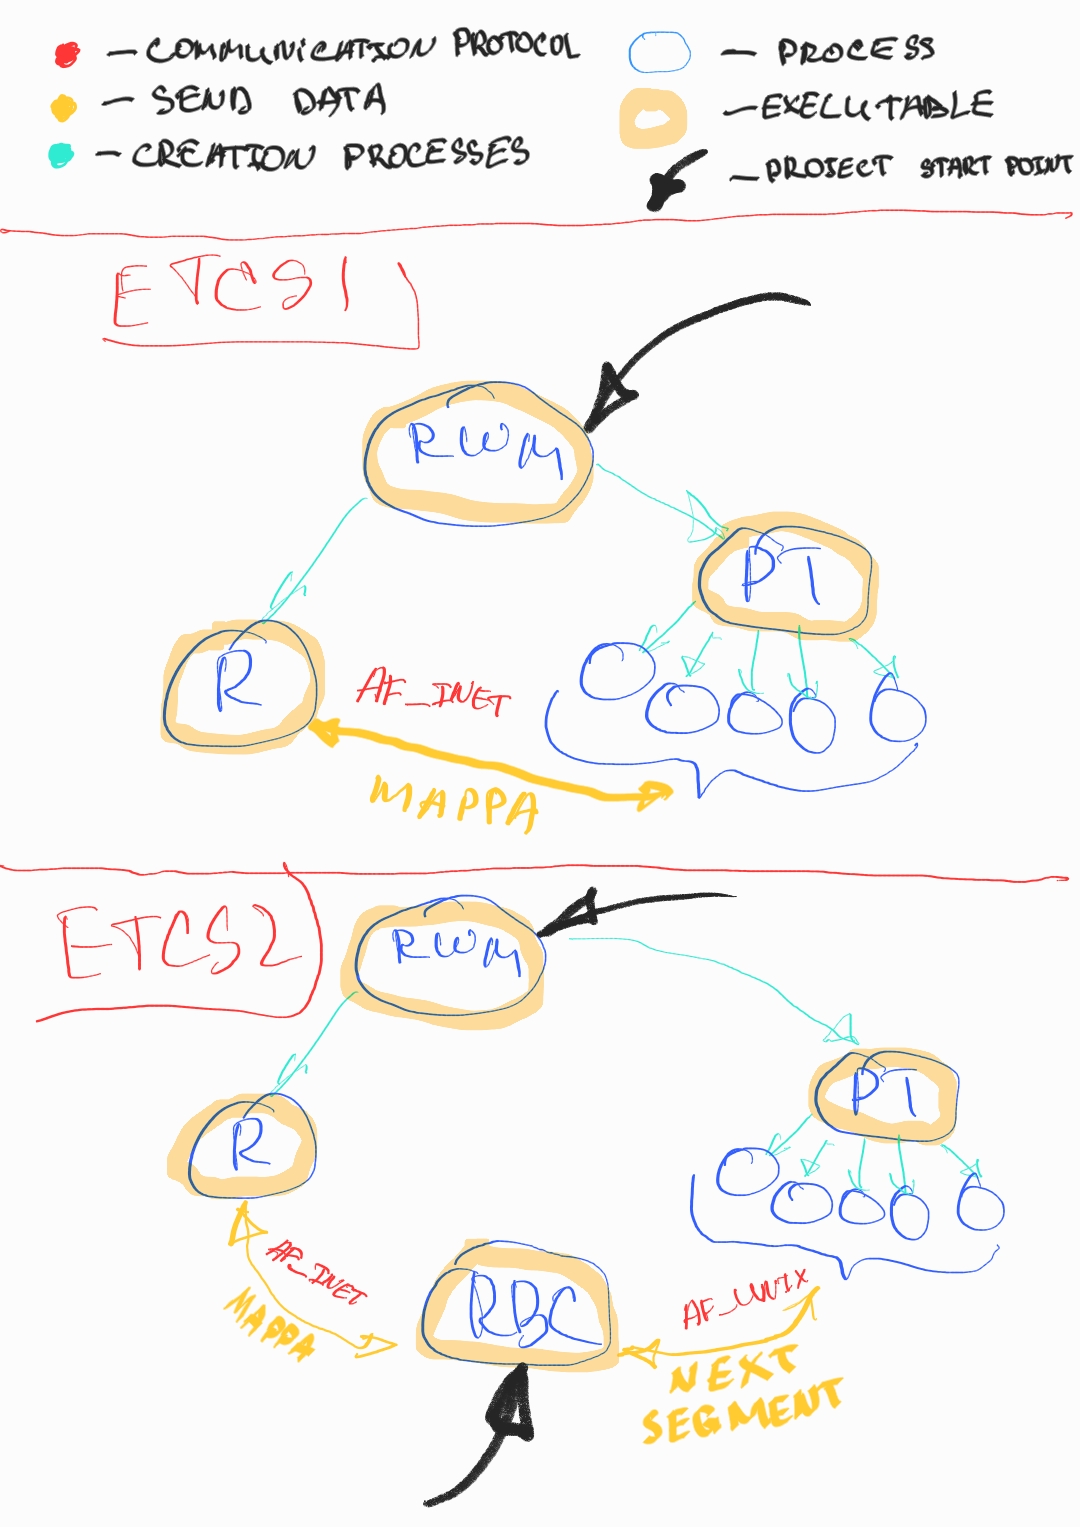 — COMMUNICATION PROTOCOL
— SEND DATA
— CREATION PROCESSES
— PROCESS
— EXECUTABLE
— PROJECT START POINT
ETCS1
RWM
PT
R
AF_INET
MAPPA
ETCS2
RWM
PT
R
AF_INET
MAPPA
RBC
AF_UNIX
NEXT
SEGMENT